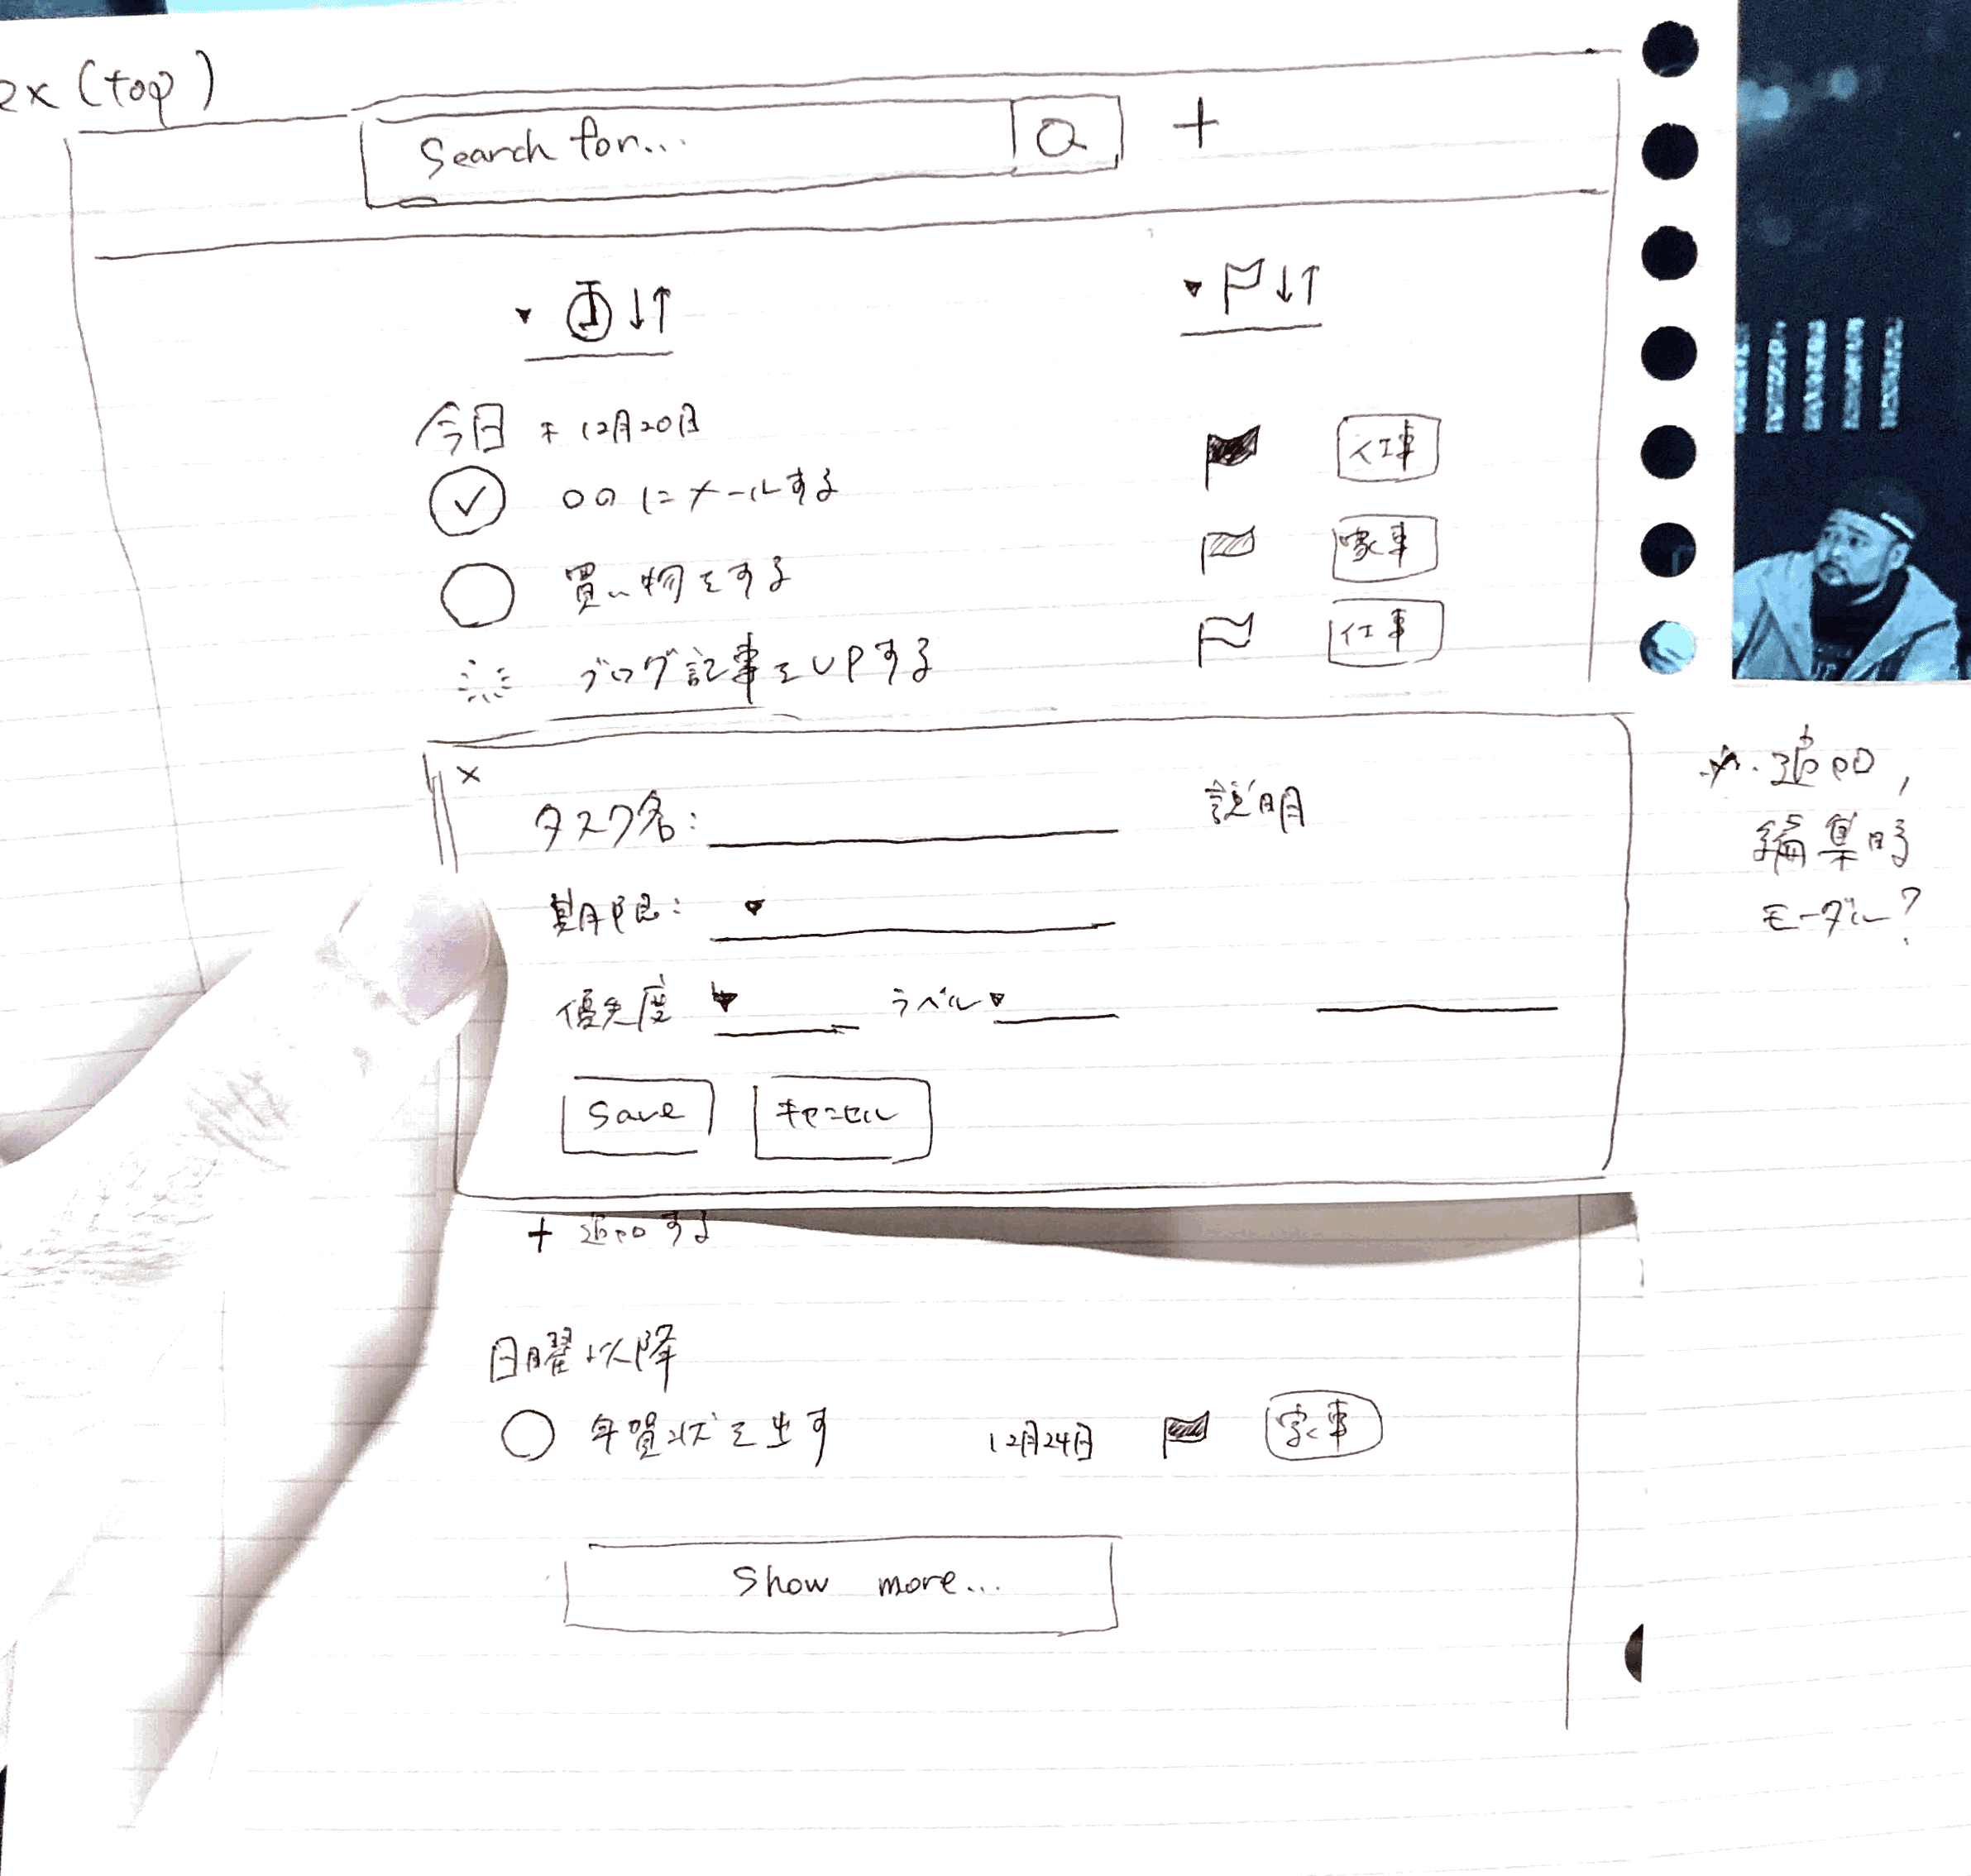 ex (top)
Search for...
+
↓↑
↓↑
今日 12月20日
〇〇にメールする
仕事
買い物をする
家事
ブログ記事をUPする
仕事
×
タスク名:
説明
期限:
優先度 ラベル
Save キャンセル
追加,
編集時
モーダル?
+ 追加する
日曜以降
年賀状を出す 12月24日 家事
Show more...